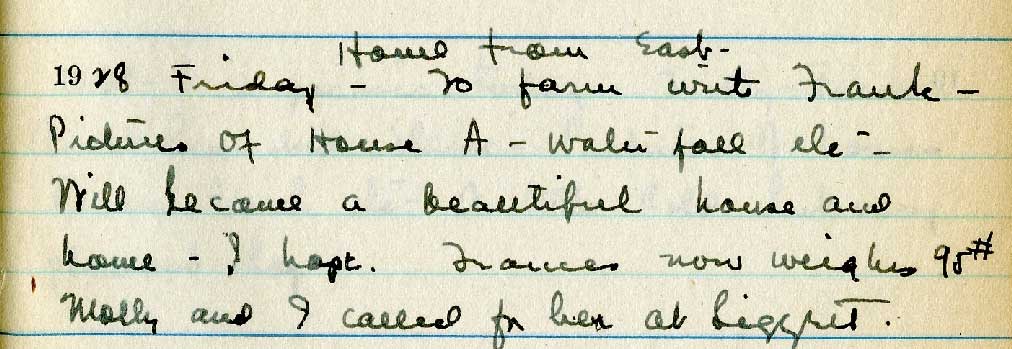 Home from East-
1928 Friday - To farm with Frank -
Pictures of House A - Water fall etc -
Will become a beautiful house and
home - I hope. Frances now weighs 95#
Molly and I called for her at Liggett.